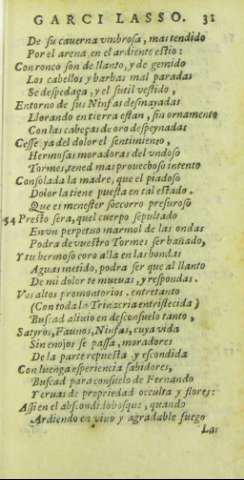 GARCI LASSO. 31
De su cauerna vmbrosa, mas tendido
Por el arena en el ardiente estio:
Con ronco son de llanto, y de gemido
Los cabellos y barbas mal paradas
Se despedaça, y el sutil vestido,
Entorno de sus Ninfas desmayadas
Llorando en tierra estan, sin ornamento
Con las cabeças de oro despeynadas
Cesse ya del dolor el sentimiento,
Hermosas moradoras del vndoso
Tormes, tened mas prouechoso intento
Consolad a la madre, que el piadoso
Dolor la tiene puesta en tal estado.
Que es menester socorro presuroso
54 Presto sera, que el cuerpo sepultado
En vn perpetuo marmol de las ondas
Podra de vuestro Tormes ser bañado,
Y tu hermoso coro alla en las hondas
Aguas metido, podra ser que al llanto
De mi dolor te mueuas, y respondas.
Vos altos promontorios. entretanto
(Con toda la Trinacria entristecida)
Buscad aliuio en desconsuelo tanto,
Satyros, Faunos, Ninfas, cuya vida
Sin enojos se passa, moradores
De la parte repuesta y escondida
Con luenga esperiencia sabidores,
Buscad para consuelo de Fernando
Yeruas de propriedad occulta y flores:
Assi en el abscondido bosque, quando
Ardiendo en viuo y agradable fuego
Las